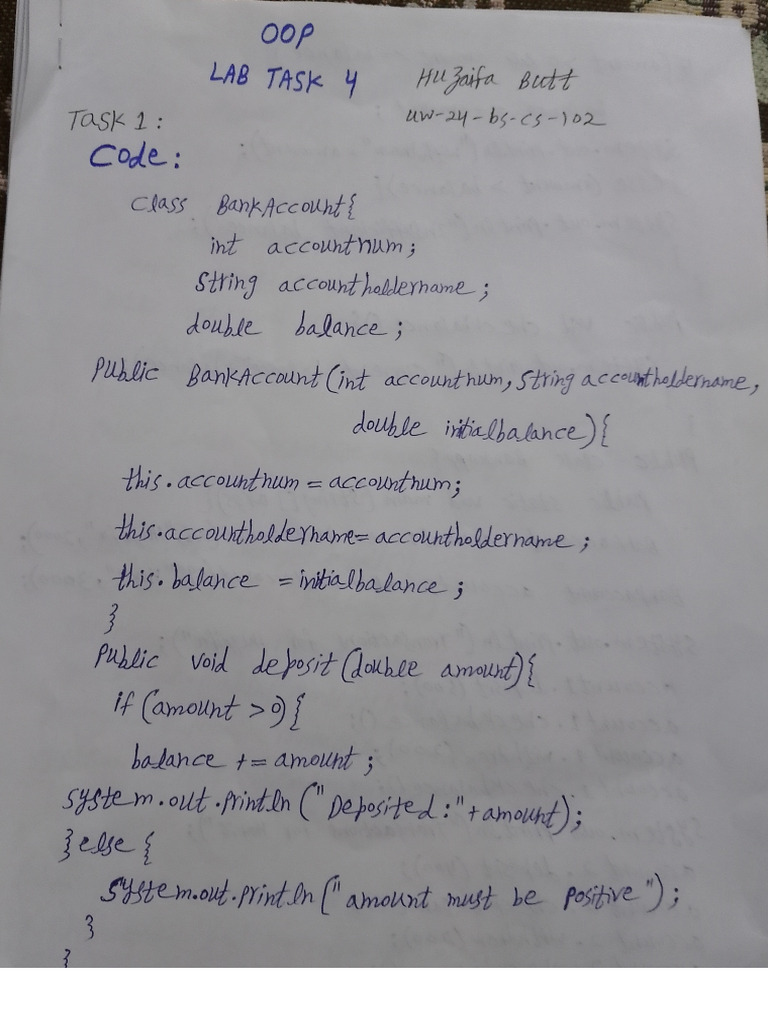 OOP
LAB TASK 4
Huzaifa Butt
uw-24-bs-cs-102
Task 1:
Code:
Class BankAccount{
int accountnum;
String accountholdername;
double balance;
Public BankAccount(int accountnum, String accountholdername,
double initialbalance){
this.accountnum = accountnum;
this.accountholdername= accountholdername;
this.balance = initialbalance;
}
Public void deposit(double amount){
if (amount >0){
balance += amount;
System.out.println("Deposited:"+amount);
}else {
System.out.println("amount must be positive");
}
}